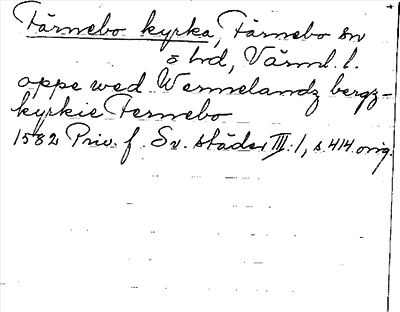 Färnebo kyrka, Färnebo sn
o hd, Värml. l.
oppe wed Wermelandz bergz-
kyrkie Fernebo
1582 Priv. f. Sv. städer III:1, s. 414 orig.